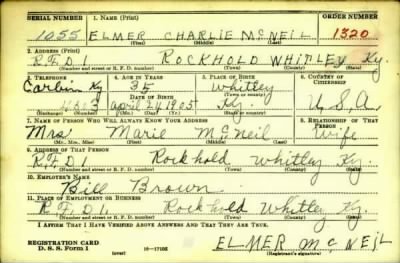 SERIAL NUMBER 1. NAME (Print) ORDER NUMBER
1055 ELMER CHARLIE MCNEIL 1320
(First) (Middle) (Last)
2. ADDRESS (Print)
R.F.D 1 ROCKHOLD WHITLEY Ky.
(Number and street or R. F. D. number) (Town) (County) (State)
3. TELEPHONE 4. AGE IN YEARS 5. PLACE OF BIRTH 6. COUNTRY OF CITIZENSHIP
Corbin Ky 35 Whitley
DATE OF BIRTH
april 24 1905 Ky. U.S.A.
(Exchange) (Number) (Mo.) (Day) (Yr.) (State or country)
7. NAME OF PERSON WHO WILL ALWAYS KNOW YOUR ADDRESS 8. RELATIONSHIP OF THAT PERSON
Mrs Marie McNeil Wife
(Mr., Mrs., Miss) (First) (Middle) (Last)
9. ADDRESS OF THAT PERSON
R.F.D 1 Rockhold Whitley Ky.
(Number and street or R. F. D. number) (Town) (County) (State)
10. EMPLOYER'S NAME
Bill Brown
11. PLACE OF EMPLOYMENT OR BUSINESS
R.F.D 1. Rockhold Whitley Ky.
(Number and street or R. F. D. number) (Town) (County) (State)
I AFFIRM THAT I HAVE VERIFIED ABOVE ANSWERS AND THAT THEY ARE TRUE.
REGISTRATION CARD
D. S. S. Form 1 (over) 16-17105 ELMER MC NEIL
(Registrant's signature)